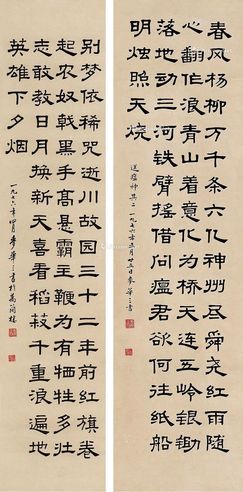 春风杨柳万千条六亿神州尽舜尧红雨随
心翻作浪青山着意化为桥天连五岭银锄
落地动三河铁臂摇借问瘟君欲何往纸船
明烛照天烧
送瘟神其二 一九七六年五月廿五日 麦华三书
别梦依稀咒逝川故园三十二年前红旗卷
起农奴戟黑手高悬霸王鞭为有牺牲多壮
志敢教日月换新天喜看稻菽千重浪遍地
英雄下夕烟
一九七六年四月 麦华三书于